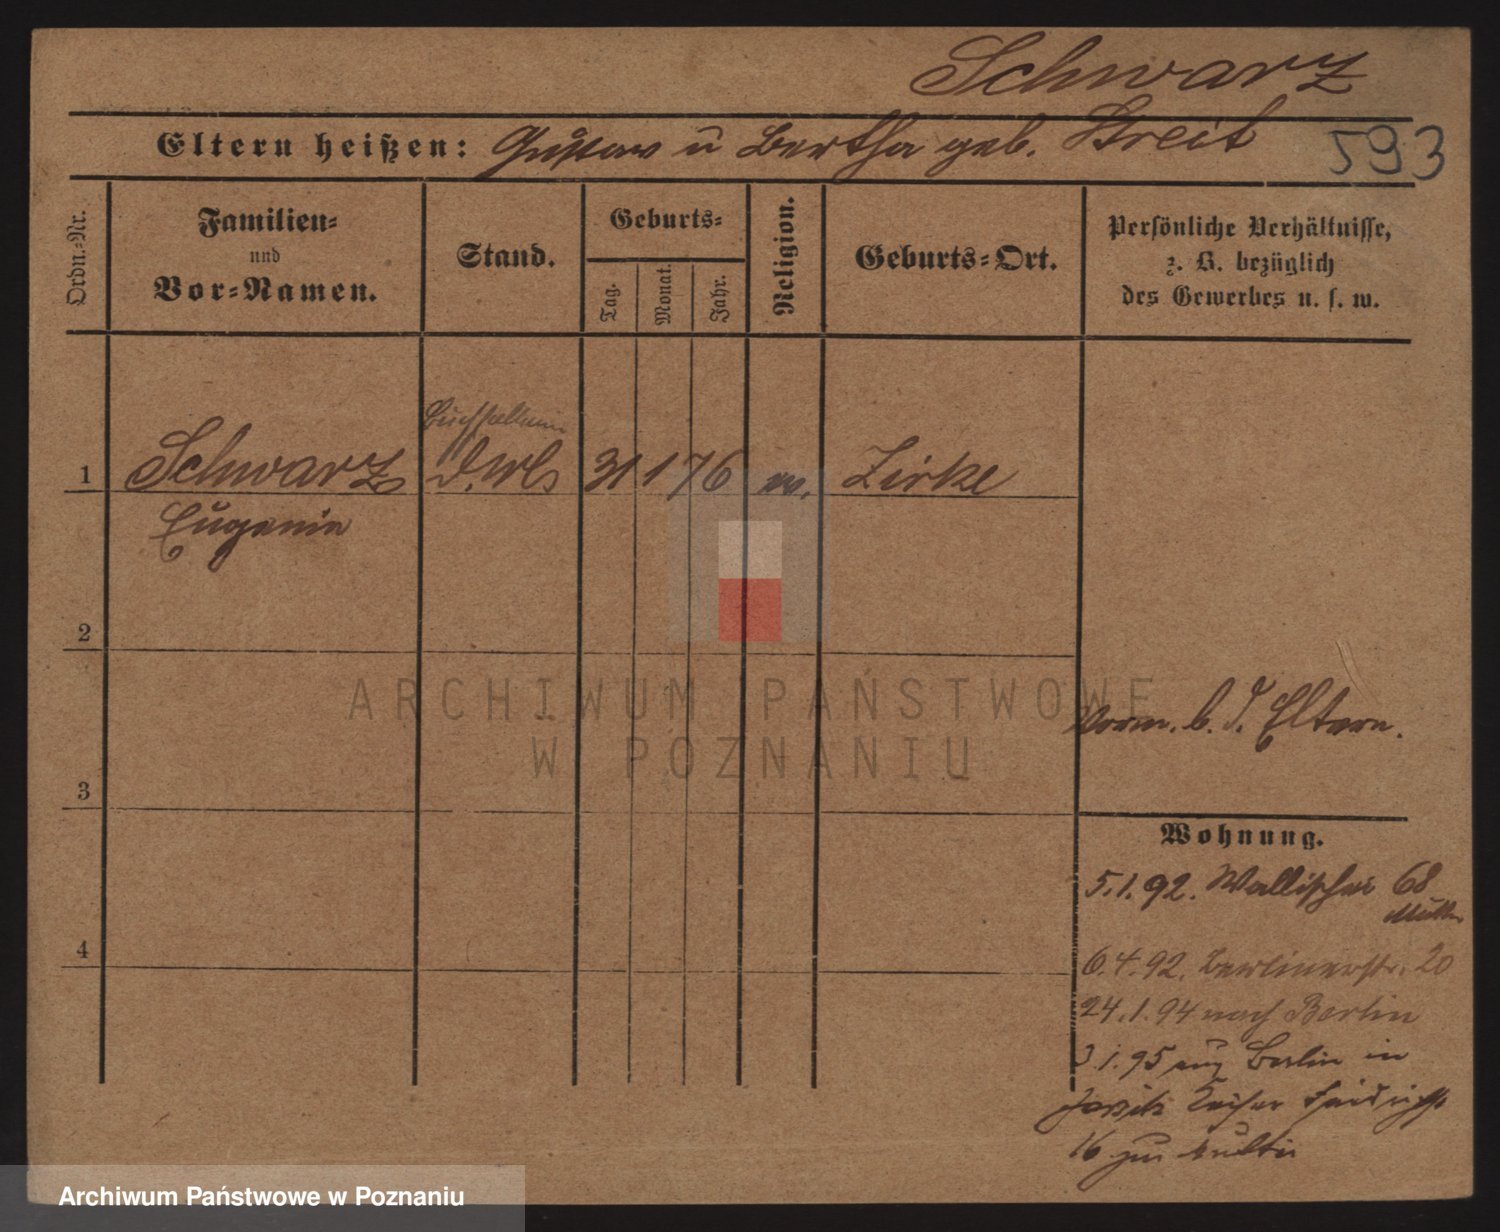 Schwarz
Eltern heißen: Gustav u Bertha geb. Streit
593
Ordn.-Nr.
Familien-
und
Vor-Namen.
Stand.
Geburts-
Tag.
Monat.
Jahr.
Religion.
Geburts-Ort.
Persönliche Verhältnisse,
z. B. bezüglich
des Gewerbes u. s. w.
Buchhalterin
1 Schwarz 31 1 76 Zirke
Eugenie
2
ARCHIWUM PAŃSTWOWE
W POZNANIU
Vorm. b. d. Eltern.
3
Wohnung.
5.1.92. Wallischei 68
Mutter
4
6.4.92. Berlinerstr. 20
24.1.94 nach Berlin
3.1.95 aus Berlin in
Jersitz Kaiser Friedrichstr
16 zur Mutter
Archiwum Państwowe w Poznaniu